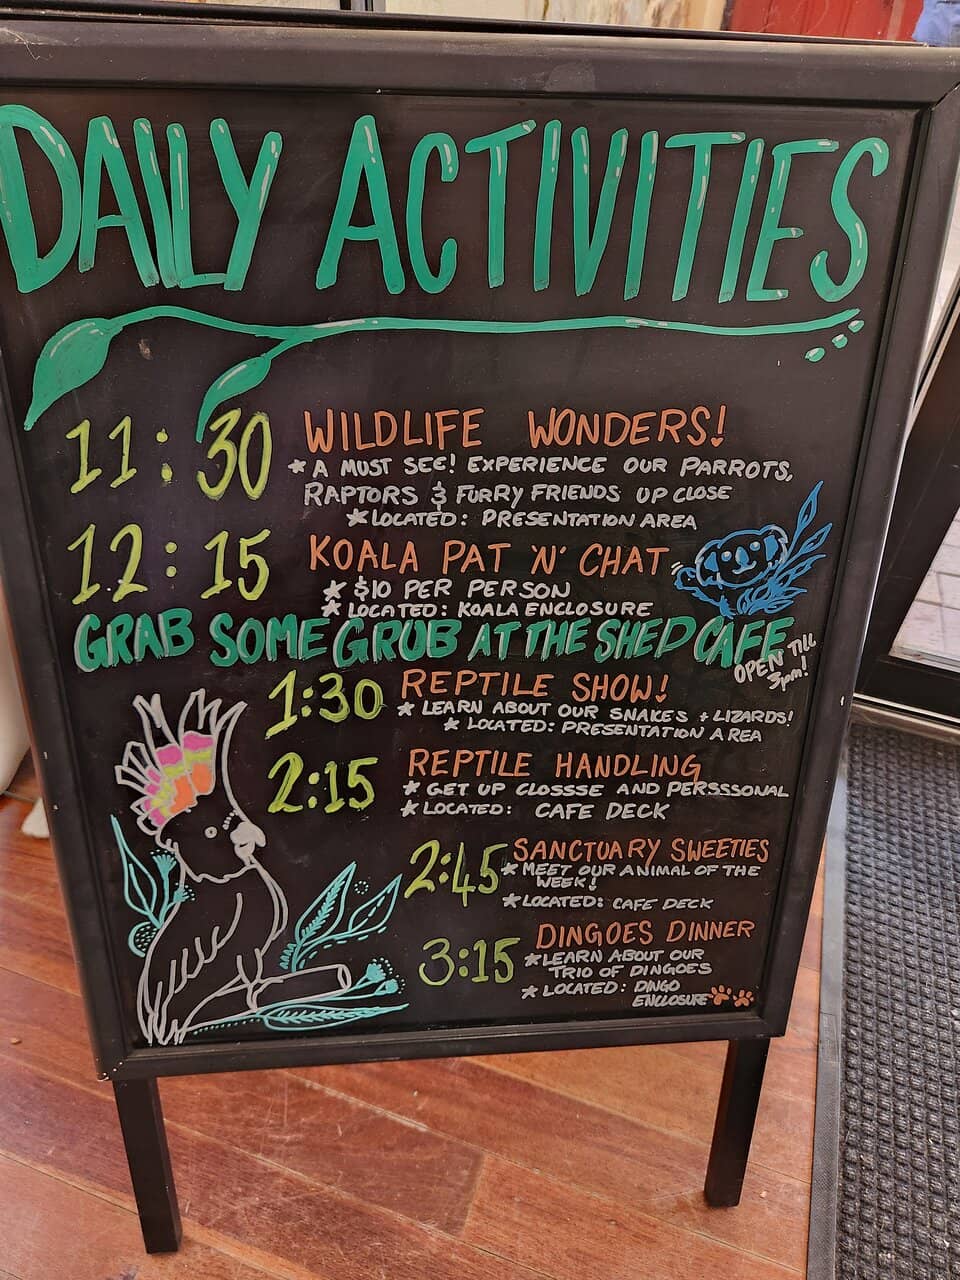 DAILY ACTIVITIES
11:30 WILDLIFE WONDERS!
* A MUST SEE! EXPERIENCE OUR PARROTS,
RAPTORS & FURRY FRIENDS UP CLOSE
* LOCATED: PRESENTATION AREA
12:15 KOALA PAT 'N' CHAT
* $10 PER PERSON
* LOCATED: KOALA ENCLOSURE
GRAB SOME GRUB AT THE SHED CAFE
OPEN TILL
3pm!
1:30 REPTILE SHOW!
* LEARN ABOUT OUR SNAKES + LIZARDS!
* LOCATED: PRESENTATION AREA
2:15 REPTILE HANDLING
* GET UP CLOSSSE AND PERSSSONAL
* LOCATED: CAFE DECK
2:45 SANCTUARY SWEETIES
* MEET OUR ANIMAL OF THE
WEEK!
* LOCATED: CAFE DECK
3:15 DINGOES DINNER
* LEARN ABOUT OUR
TRIO OF DINGOES
* LOCATED: DINGO
ENCLOSURE